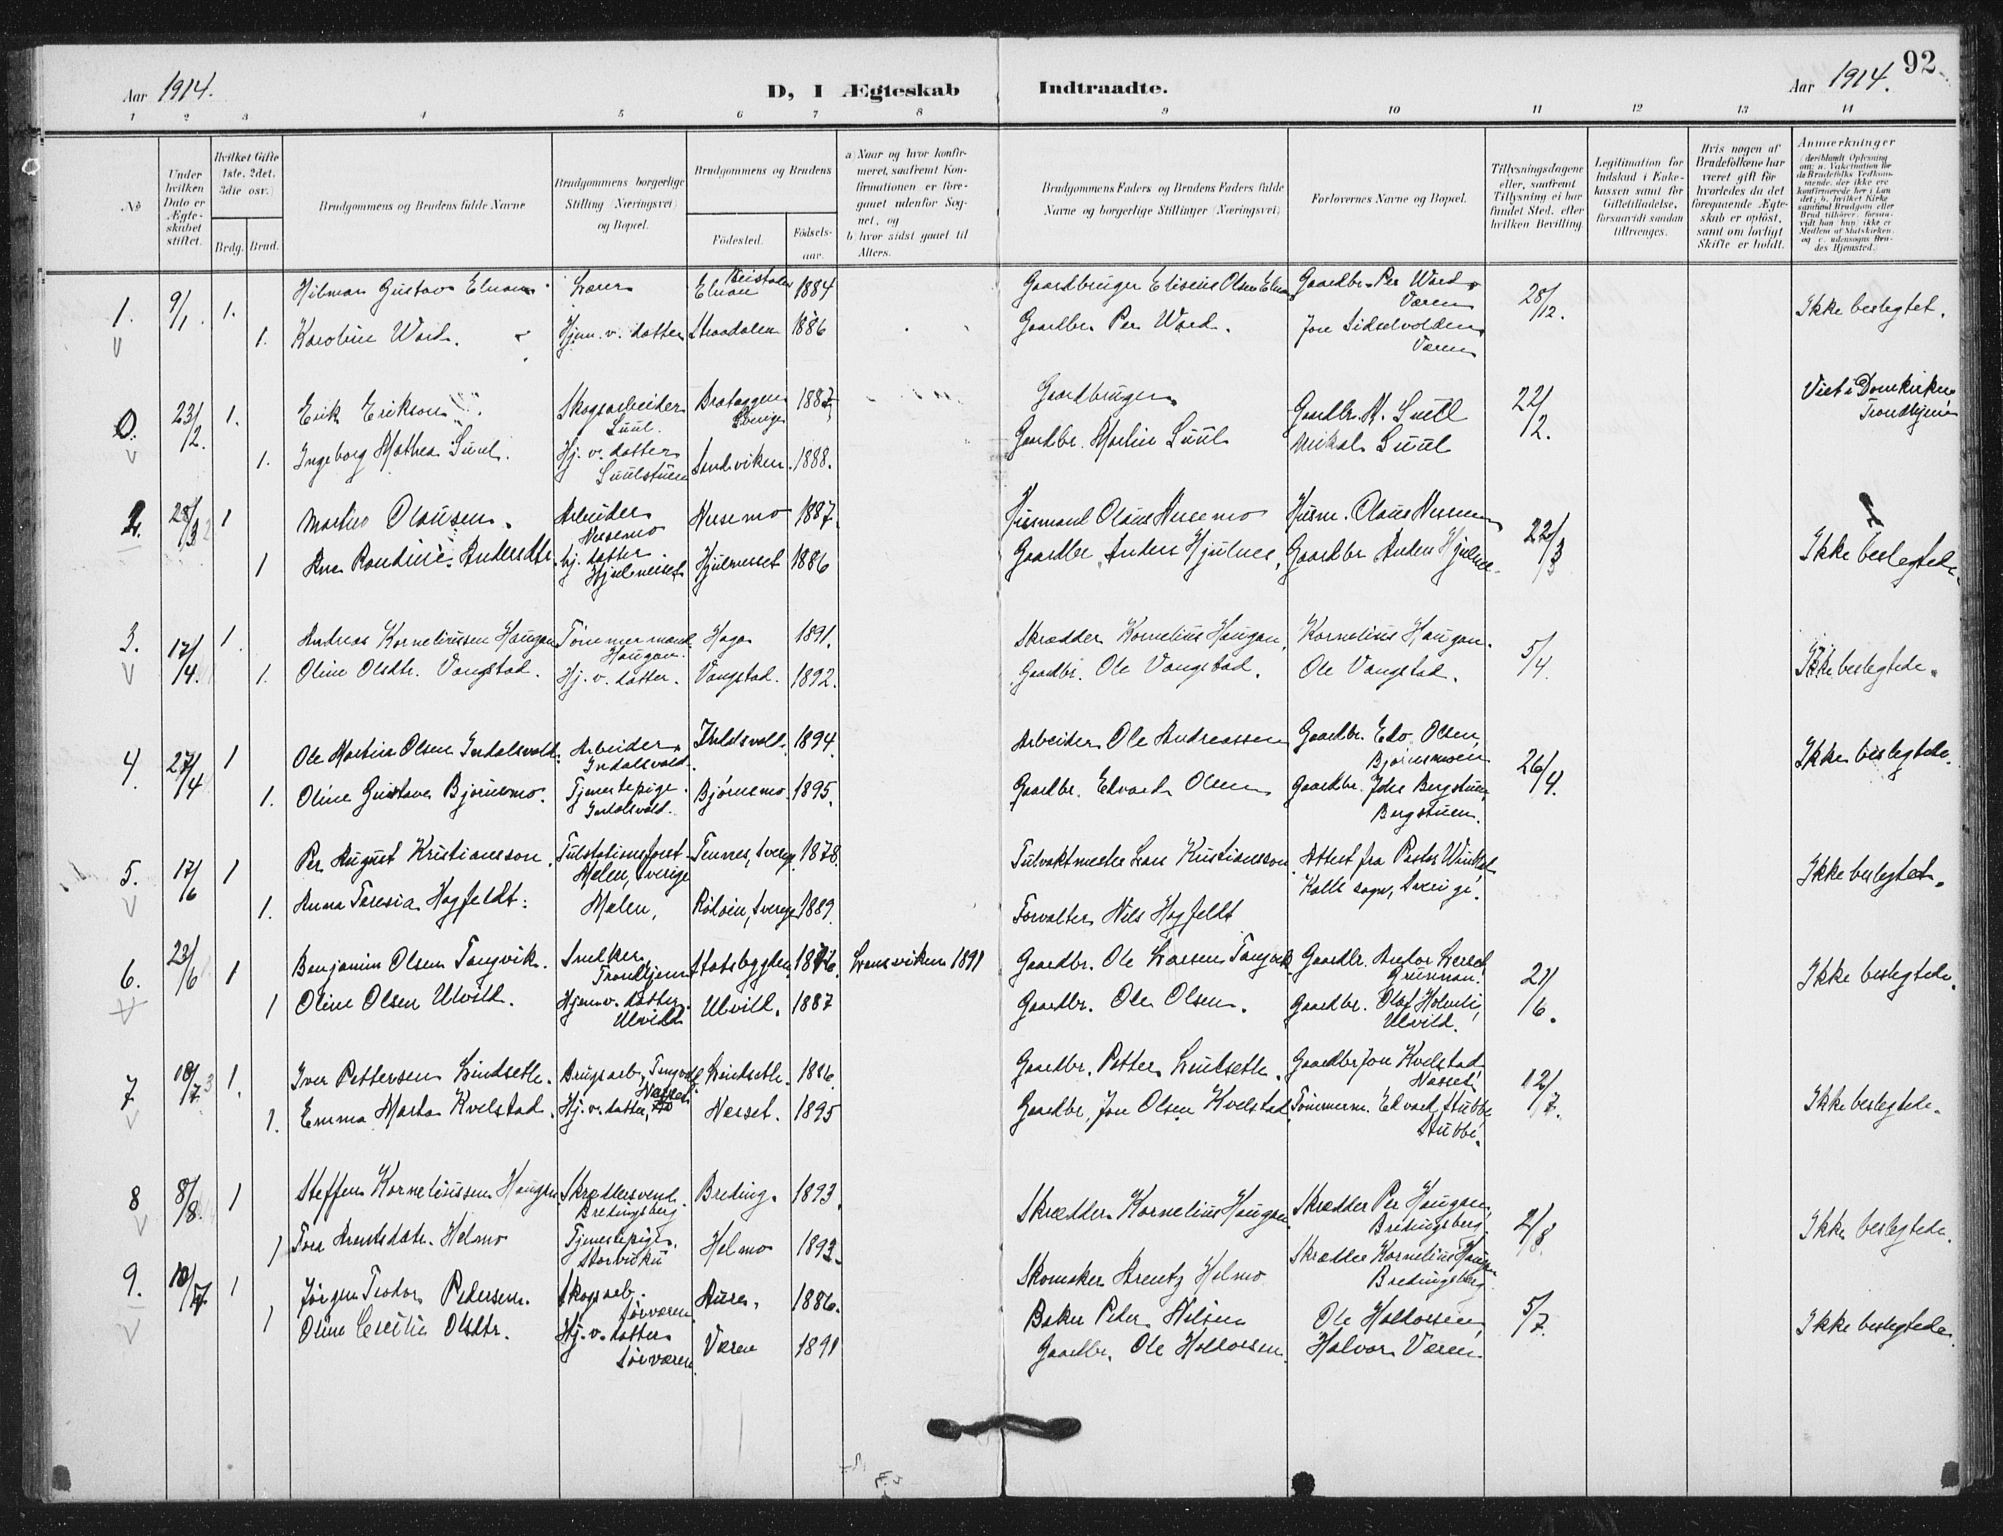 Aar 1914.
D, I Ægteskab Indtraadte.
Aar 1914. 92
1 2 3 4 5 6 7 8 9 10 11 12 13 14
No
Under hvilken Dato er Ægteskabet stiftet.
Hvilket Gifte 1ste. 2det. 3die osv.)
Brdg. Brud.
Brudgommens og Brudens fulde Navne
Brudgommens borgerlige Stilling (Næringsvei) og Bopæl.
Brudgommens og Brudens
Fødested.
Fødselsaar.
a) Naar og hvor konfirmeret, saafremt Konfirmationen er foregaaet udenfor Sognet, og
b) hvor sidst gaaet til Alters.
Brudgommens Faders og Brudens Faders fulde Navne og borgerlige Stillinger (Næringsvei)
Forlovernes Navne og Bopæl.
Tillysningsdagene eller, saafremt Tillysning ei har fundet Sted, efter hvilken Bevilling.
Legitimation for Indskud i Enkekassen samt for Giftetilladelse, forsaavidt saadan tiltrænges.
Hvis nogen af Brudefolkene har været gift før hvorledes da det foregaaende Ægteskab er opløst, samt om lovligt Skifte er holdt.
Anmærkninger
1. 9/1. 1. Hilmar Gustav Elnan Lærer Elnan 1884 Gaardbruger Elisius Olsen Elnan Gaardbr. Per Ward Væren 28/12. Ikke beslegtet.
1. Karoline Ward. Hjem. v. datter Straadalen 1886 Gaardbr. Per Ward. Jon Sidselvolden Væren
0. 23/2. 1. Erik Erikson Skogsarbeider Suul. Sverige 1887 Gaardbruger Gaardbr. M. Suul 22/2. Viet i Domkirken Trondhjem
1. Ingeborg Mathea Suul. Hj. v. datter Suulstuen Sandviken. 1888. Gaardbr. Martin Suul Mikal Suul
2. 28/3 1 Martin Olausen. Arbeider Nesemo Nesemo 1887. Husmand Olaus Nesemo Husm. Olaus Nesemo 22/3 Ikke beslegtede.
1 Ane Rondine Andersdtr. Hj. datter Hjulnesset Hjulnesset 1886 Gaardbr. Anders Hjulnes, Gaardbr Anders Hjulnes.
3. 17/4. 1. Andreas Korneliussen Haugan Tømmermand Haugan. Haga 1891. Skrædder Kornelius Haugan. Kornelius Haugan. 5/4. Ikke beslegtede.
1. Oline Olsdtr. Vangstad. Hj. v. datter. Vangstad. 1892. Gaardbr. Ole Vangstad. Ole Vangstad.
4. 27/4 1 Ole Martin Olsen Indalsvold. Arbeider Indalsvold. Indalsvold. 1894. Arbeider Ole Andreassen Gaardbr. Edv. Olsen, Bjørnemoen 26/4. Ikke beslegtede.
1. Oline Gustava Bjørnemo. Tjenestepige Indalsvold. Bjørnemo. 1895. Gaardbr. Edvard Olsen Gaardbr. Bergstuen, Bergstuen.
5. 17/6 1 Per August Kristiansson. Melen, Sverige Tennes, Sverige. 1878. Kristiansson. Attest fra Pastor Kalls sogn, Sverige. Ikke beslegtet.
1. Anna Teresia Høgfeldt. Melen, Rödoen, Sverige 1889. Forvalter Nils Høgfeldt
6. 23/6 1 Benjamin Olsen Tangvik. Snekker, Trondhjem Stadsbygden. 1876. Lensviken 1891 Gaardbr. Ole Larsen Tangvik Gaardbr. Grunnan. 21/6. Ikke beslegtede.
1 Oline Olsen Ulvild. Hjem. v. datter. Ulvild Ulvild. 1887 Gaardbr. Ole Olsen. Gaardbr. Olaf Holmli, Ulvild.
7 18/7 1. Iver Pettersen Lindseth. Brugsarb. Lindseth. 1886. Gaardbr. Petter Lindseth. Gaardbr Jon Kvelstad, Nesset. 12/7. Ikke beslegtede.
1. Emma Marta Kvelstad. Hj. v. datter, Nesset Nesset. 1895 Gaardbr. Jon Olsen Kvelstad Tømmerm. Edvard Stubbe, Stubbe.
8 8/8. 1 Steffen Korneliussen Haugan Skræddersvend. Bredingsberg Breding. 1893. Skrædder Kornelius Haugan Skrædder Per Haugan, Bredingsberg 2/8. Ikke beslegtede.
1 Tora Arentsdatr. Helmo Tjenestepige, Storviken Helmo 1893. Skomaker Arentz Helmo Skrædder Kornelius Haugan Bredingsberg
9. 18/7 1 Jørgen Teodor Pedersen. Skogsarb. Sørværen Aure. 1886. Baker Peder Nilsen Ole Haldorsen, 5/7. Ikke beslegtede
1 Oline Cecilie Olsdtr. Hj. v. datter Sørværen Væren 1891 Gaardbr. Ole Haldorsen. Halvor Væren.